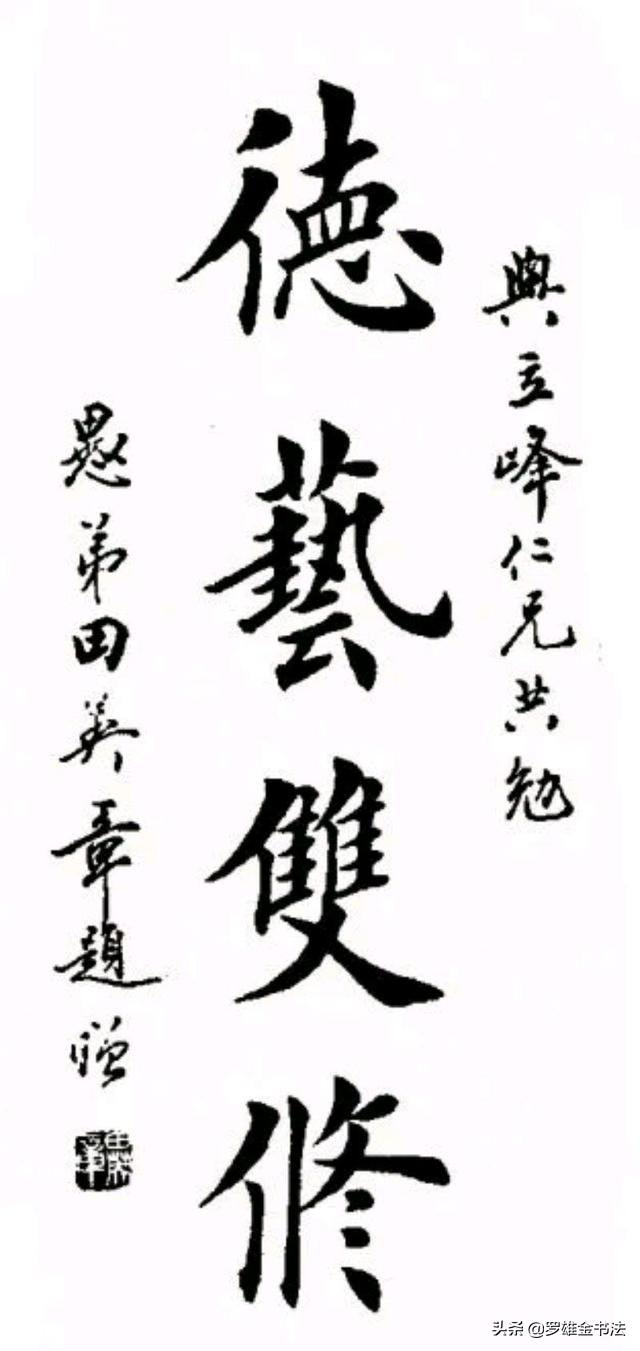 與立峰仁兄共勉
德藝雙修
愚弟田英章題贈
头条 @罗雄金书法